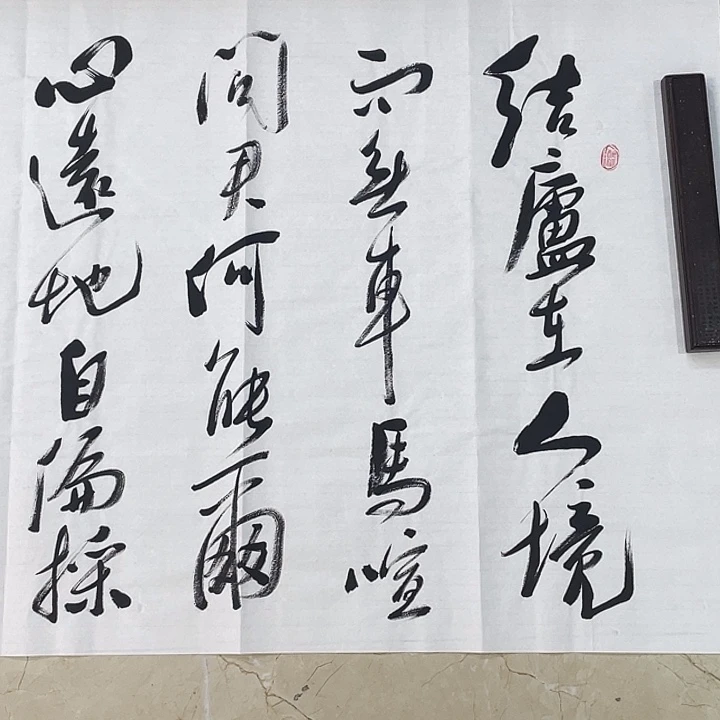 結廬在人境
而無車馬喧
問君何能爾
心遠地自偏採